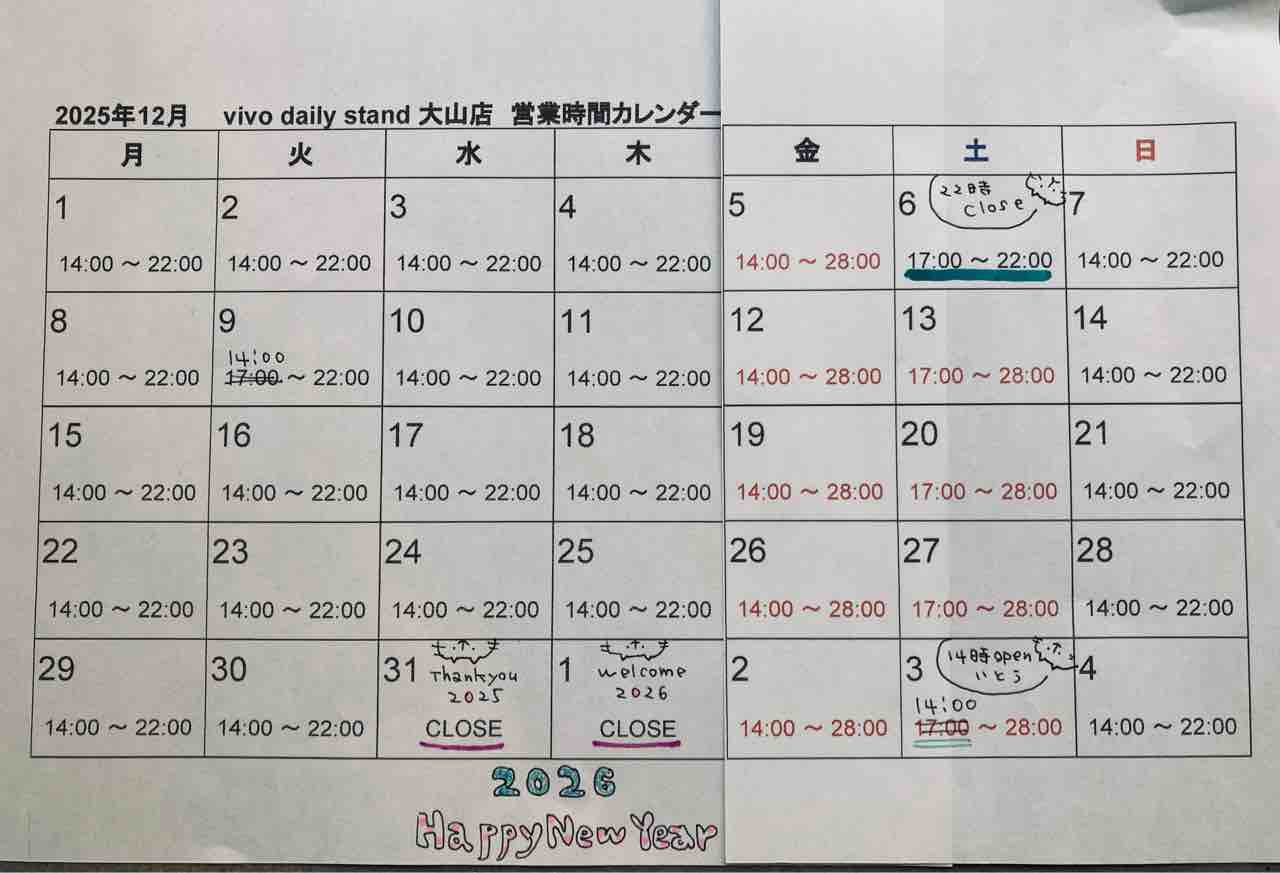 2025年12月 vivo daily stand 大山店 営業時間カレンダー
月 火 水 木 金 土 日
1 2 3 4 5 6 7
22時
close
14:00 〜 22:00 14:00 〜 22:00 14:00 〜 22:00 14:00 〜 22:00 14:00 〜 28:00 17:00 〜 22:00 14:00 〜 22:00
8 9 10 11 12 13 14
14:00
14:00 〜 22:00 17:00 〜 22:00 14:00 〜 22:00 14:00 〜 22:00 14:00 〜 28:00 17:00 〜 28:00 14:00 〜 22:00
15 16 17 18 19 20 21
14:00 〜 22:00 14:00 〜 22:00 14:00 〜 22:00 14:00 〜 22:00 14:00 〜 28:00 17:00 〜 28:00 14:00 〜 22:00
22 23 24 25 26 27 28
14:00 〜 22:00 14:00 〜 22:00 14:00 〜 22:00 14:00 〜 22:00 14:00 〜 28:00 17:00 〜 28:00 14:00 〜 22:00
29 30 31 1 2 3 4
Thankyou
2025
welcome
2026
14時open
いとう
14:00
14:00 〜 22:00 14:00 〜 22:00 CLOSE CLOSE 14:00 〜 28:00 17:00 〜 28:00 14:00 〜 22:00
2026
Happy New Year